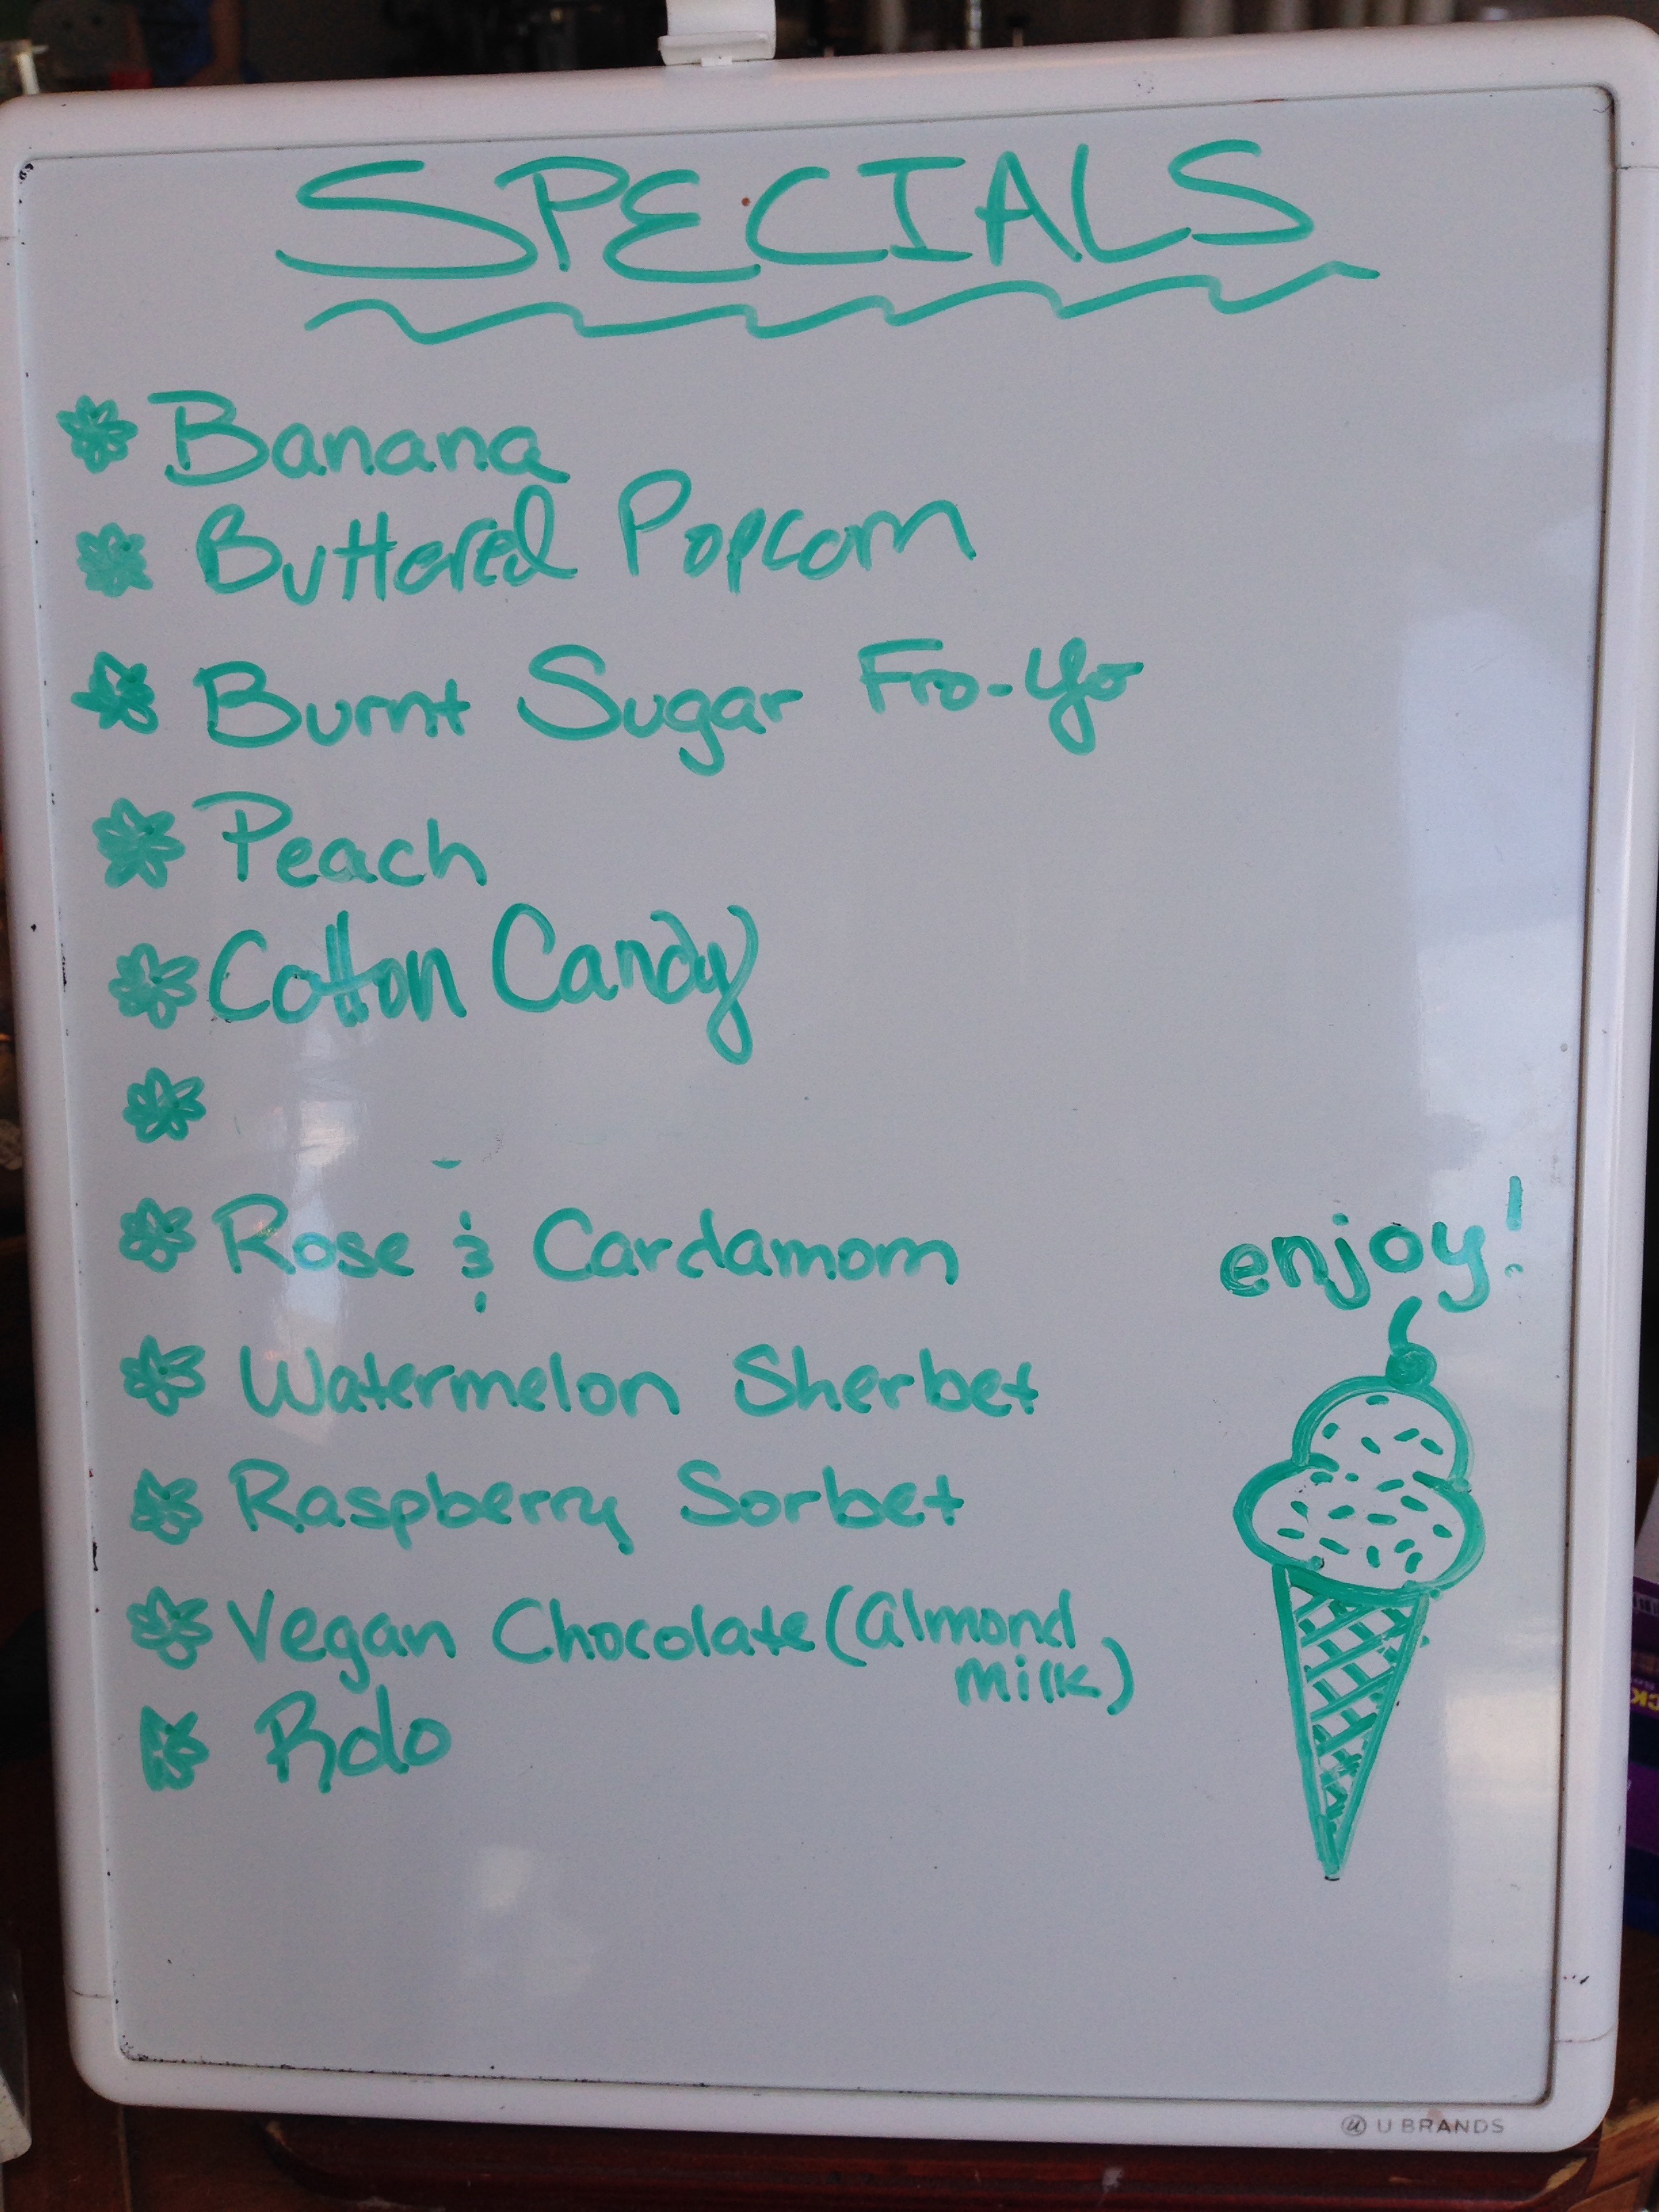 SPECIALS
Banana
Buttered Popcorn
Burnt Sugar Fro-Yo
Peach
Cotton Candy
Rose & Cardamom
enjoy!
Watermelon Sherbet
Raspberry Sorbet
Vegan Chocolate (almond
milk)
Rolo
U BRANDS